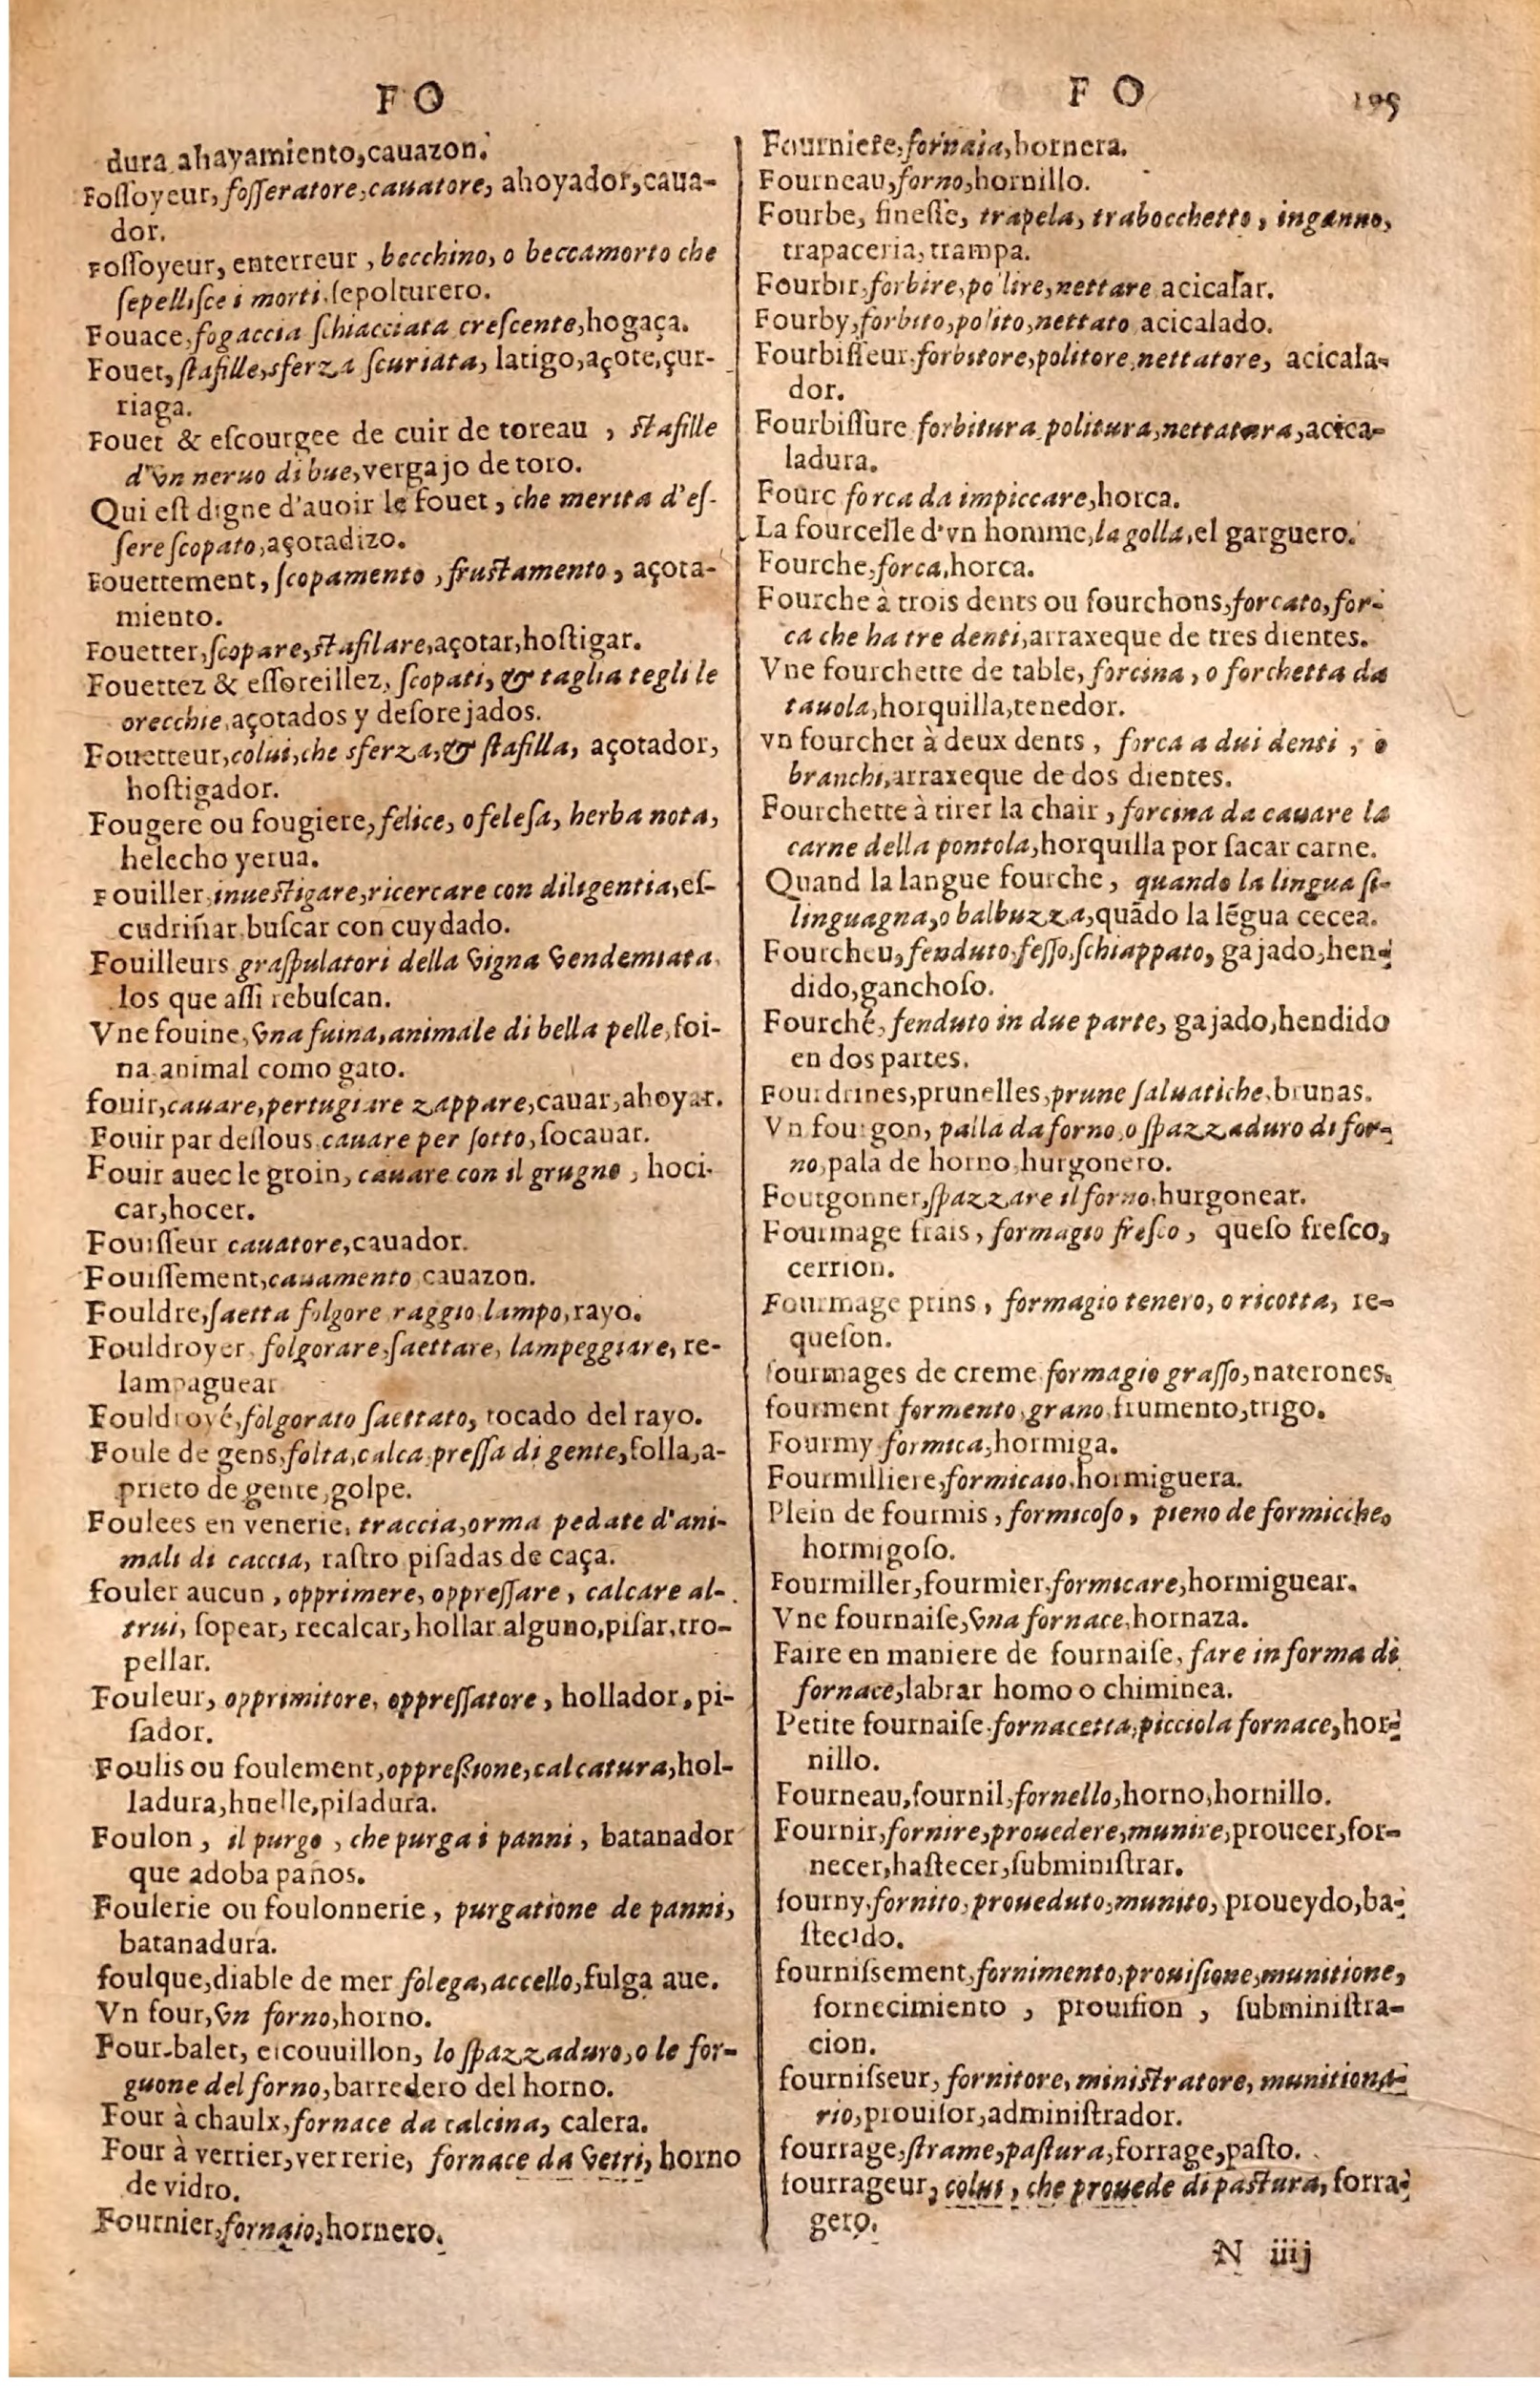 F O
dura ahayamiento,cauazon.
Foſſoyeur, foſſeratore,cauatore, ahoyador,caua-
dor.
Foſſoyeur, enterreur , becchino, o beccamorto che
ſepelliſce i morti,ſepolturero.
Fouace,fogaccia ſchiacciata creſcente,hogaça.
Fouet, ſtafille,sferza ſcuriata, latigo,açote,çur-
riaga.
Fouet & eſcourgee de cuir de toreau , ſtafille
d'vn neruo di bue,vergajo de toro.
Qui eſt digne d'auoir le fouet , che merita d'eſ-
ſere ſcopato,açotadizo.
Fouettement, ſcopamento , fruſtamento , açota-
miento.
Fouetter,ſcopare,ſtafilare,açotar,hoſtigar.
Fouettez & eſſoreillez, ſcopati, & taglia tegli le
orecchie,açotados y deſorejados.
Fouetteur,colui,che sferza,& ſtafilla, açotador,
hoſtigador.
Fougere ou fougiere, felice, o feleſa, herba nota,
helecho yerua.
Fouiller,inueſtigare,ricercare con diligentia,eſ-
cudriñar,buſcar con cuydado.
Fouilleurs graſpulatori della vigna vendemiata.
los que aſſi rebuſcan.
Vne fouine,vna fuina,animale di bella pelle,foi-
na animal como gato.
fouir,cauare,pertugiare zappare,cauar,ahoyar.
Fouir par deſſous cauare per ſotto,ſocauar.
Fouir auec le groin, cauare con il grugno , hoci-
car,hocer.
Fouiſſeur cauatore,cauador.
Fouiſſement,cauamento cauazon.
Fouldre,ſaetta folgore raggio lampo,rayo.
Fouldroyer folgorare,ſaettare, lampeggiare, re-
lampaguear
Fouldroyé,folgorato ſaettato, tocado del rayo.
Foule de gens,folta,calca preſſa di gente,folla,a-
prieto de gente,golpe.
Foulees en venerie, traccia,orma pedate d'ani-
mali di caccia, raſtro piſadas de caça.
fouler aucun , opprimere, oppreſſare , calcare al-
trui, ſopear, recalcar, hollar alguno,piſar,tro-
pellar.
Fouleur, opprimitore, oppreſſatore , hollador, pi-
ſador.
Foulis ou foulement,oppreßione,calcatura,hol-
ladura,huelle,piſadura.
Foulon , il purgo , che purga i panni , batanador
que adoba paños.
Foulerie ou foulonnerie , purgatione de panni,
batanadura.
foulque,diable de mer folega,accello,fulga aue.
Vn four,vn forno,horno.
Four-balet, eſcouuillon, lo ſpazzaduro,o le for-
guone del forno,barredero del horno.
Four à chaulx,fornace da calcina, calera.
Four à verrier,verrerie, fornace da vetri, horno
de vidro.
Fournier,fornaio,hornero.
F O 195
Fourniere,fornaia,hornera.
Fourneau,forno,hornillo.
Fourbe, fineſſe, trapela, trabocchetto , inganno,
trapaceria,trampa.
Fourbir,forbire,polire,nettare acicalar.
Fourby,forbito,polito,nettato acicalado.
Fourbiſſeur,forbitore,politore,nettatore, acicala-
dor.
Fourbiſſure forbitura politura,nettatura,acica-
ladura.
Fourc forca da impiccare,horca.
La fourcelle d'vn homme,la golla,el garguero.
Fourche,forca,horca.
Fourche à trois dents ou fourchons,forcato,for-
ca che ha tre denti,arraxeque de tres dientes.
Vne fourchette de table, forcina , o forchetta da
tauola,horquilla,tenedor.
vn fourchet à deux dents , forca a dui denti , o
branchi,arraxeque de dos dientes.
Fourchette à tirer la chair , forcina da cauare la
carne della pontola,horquilla por ſacar carne.
Quand la langue fourche , quando la lingua ſi-
linguagna,o balbuzza,quãdo la lẽgua cecea.
Fourcheu,fenduto,feſſo,ſchiappato, gajado,hen-
dido,ganchoſo.
Fourché, fenduto in due parte, gajado,hendido
en dos partes.
Fourdrines,prunelles,prune ſaluatiche,brunas.
Vn fourgon, palla da forno,o ſpazzaduro di for-
no,pala de horno,hurgonero.
Fourgonner,ſpazzare il forno,hurgonear.
Fourmage frais , formagio freſco , queſo freſco,
cerrion.
Fourmage prins , formagio tenero, o ricotta, re-
queſon.
fourmages de creme formagio graſſo,naterones.
fourment formento,grano frumento,trigo.
Fourmy formica,hormiga.
Fourmilliere,formicaio,hormiguera.
Plein de fourmis , formicoſo , pieno de formicche,
hormigoſo.
Fourmiller,fourmier,formicare,hormiguear.
Vne fournaiſe,vna fornace,hornaza.
Faire en maniere de fournaiſe, fare in forma di
fornace,labrar homo o chiminea.
Petite fournaiſe,fornacetta,picciola fornace,hor-
nillo.
Fourneau,fournil,fornello,horno,hornillo.
Fournir,fornire,prouedere,munire,proueer,for-
necer,baſtecer,ſubminiſtrar.
fourny,fornito,proueduto,munito, proueydo,ba-
ſtecido.
fourniſsement,fornimento,prouiſione,munitione,
fornecimiento , prouiſion , ſubminiſtra-
cion.
fourniſseur, fornitore, miniſtratore, munitiona-
rio,prouiſor,adminiſtrador.
fourrage,ſtrame,paſtura,forrage,paſto.
fourrageur, colui , che prouede di paſtura, forra-
gero.
N iiij